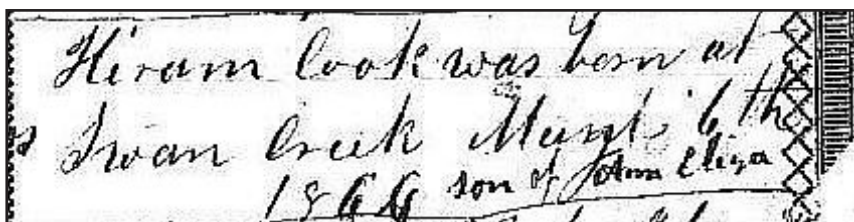 Hiram Cook was born at
Swan Creek March 6th
1866 son of Ann Eliza